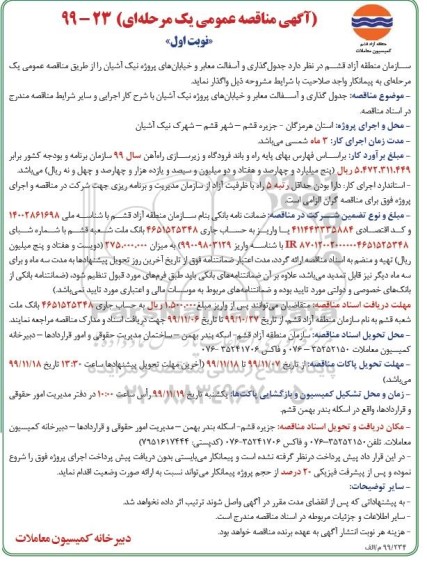 (آگهی مناقصه عمومی یک مرحله‌ای) ۲۳ - ۹۹
«نوبت اول»
منطقه آزاد قشم
کمیسیون معاملات
سازمان منطقه آزاد قشم در نظر دارد جدول‌گذاری و آسفالت معابر و خیابان‌های پروژه نیک آشیان را از طریق مناقصه عمومی یک
مرحله‌ای به پیمانکار واجد صلاحیت با شرایط مشروحه ذیل واگذار نماید.
- موضوع مناقصه: جدول گذاری و آسفالت معابر و خیابان‌های پروژه نیک آشیان با شرح کار اجرایی و سایر شرایط مناقصه مندرج
در اسناد مناقصه.
- محل و اجرای پروژه: استان هرمزگان - جزیره قشم - شهر قشم - شهرک نیک آشیان
- مدت زمان اجرای کار: ۳ ماه شمسی می‌باشد.
- مبلغ برآورد کار: براساس فهارس بهای پایه راه و باند فرودگاه و زیرسازی راه‌آهن سال ۹۹ سازمان برنامه و بودجه کشور برابر
۵.۴۷۲.۳۱۱.۴۴۹ ریال (پنج میلیارد و چهارصد و هفتاد و دو میلیون و سیصد و یازده هزار و چهارصد و چهل و نه ریال) می‌باشد.
- استاندارد اجرای کار: دارا بودن حداقل رتبه ۵ راه با ظرفیت آزاد از سازمان مدیریت و برنامه ریزی جهت شرکت در مناقصه و اجرای
پروژه فوق برای مناقصه گران الزامی است.
- مبلغ و نوع تضمین شرکت در مناقصه: ضمانت نامه بانکی بنام سازمان منطقه آزاد قشم با شناسه ملی ۱۴۰۰۲۸۶۱۶۹۸
و کد اقتصادی ۴۱۱۴۴۳۳۳۵۸۸۴ یا واریز به حساب جاری ۴۶۵۱۵۲۵۳۴۸ بانک ملت شعبه قشم با شماره شبای
۴۶۵۱۵۲۵۳۴۸ IR با شناسه واریز به میزان ۲۷۵.۰۰۰.۰۰۰ (دویست و هفتاد و پنج میلیون
ریال) تهیه و منضم به اسناد مناقصه ارائه گردد، مدت اعتبار ضمانتنامه فوق از تاریخ آخرین روز تحویل پیشنهادها به مدت سه ماه و برای
سه ماه دیگر نیز قابل تمدید می‌باشد، علاوه بر آن ضمانتنامه‌های بانکی باید طبق فرم‌های مورد قبول تنظیم شود، (ضمانتنامه بانکی از
بانک‌های خصوصی و دولتی مورد تایید بوده و ضمانتنامه‌های مربوط به موسسات مالی و اعتباری مورد تایید نمی‌باشد.)
مهلت دریافت اسناد مناقصه: متقاضیان می‌توانند پس از واریز مبلغ ۱.۵۰۰.۰۰۰ ریال به حساب جاری ۴۶۵۱۵۲۵۳۴۸ بانک ملت
شعبه قشم به نام سازمان منطقه آزاد قشم، از تاریخ ۹۹/۱۰/۲۷ تا تاریخ ۹۹/۱۱/۰۶ جهت دریافت اسناد و مدارک مناقصه مراجعه نمایند.
- محل تحویل اسناد مناقصه: سازمان منطقه آزاد قشم- اسکله بندر بهمن - ساختمان مدیریت حقوقی و امور قراردادها - دبیرخانه
کمیسیون معاملات ۳۵۲۵۲۱۵۰ - ۰۷۶ و فاکس ۳۵۲۴۱۷۰۶ -۰۷۶
- مهلت تحویل پاکات مناقصه: از تاریخ ۹۹/۱۱/۰۷ تا ۹۹/۱۱/۱۸ (آخرین مهلت تحویل پیشنهادها ساعت ۱۳:۳۰ تاریخ ۹۹/۱۱/۱۸
می‌باشد)
- زمان و محل تشکیل کمیسیون و بازگشایی پاکت‌ها: یکشنبه تاریخ ۹۹/۱۱/۱۹ رأس ساعت ۱۰:۰۰ در دفتر مدیریت امور حقوقی
و قراردادها، واقع در اسکله بندر بهمن قشم
- مکان دریافت و تحویل اسناد مناقصه: جزیره قشم- اسکله بندر بهمن - مدیریت امور حقوقی و قراردادها - دبیرخانه کمیسیون
معاملات. تلفن ۳۵۲۵۲۱۵۰-۰۷۶ و فاکس ۳۵۲۴۱۷۰۶-۰۷۶ (کدپستی: ۷۹۵۱۶۱۷۴۴۴)
- در این قرار داد پیش پرداخت درنظر گرفته نشده است و پیمانکار می‌بایستی بدون دریافت پیش پرداخت اجرای پروژه فوق را شروع
نموده و پس از پیشرفت فیزیکی ۲۰ درصد از حجم پروژه پیمانکار می‌تواند نسبت به ارائه صورت وضعیت اقدام نماید.
- سایر توضیحات:
- به پیشنهاداتی که پس از انقضای مدت مقرر در آگهی واصل شوند ترتیب اثر داده نخواهد شد.
- سایر اطلاعات و جزئیات مربوطه در اسناد مناقصه مندرج است.
- هزینه هر نوبت انتشار آگهی به عهده برنده مناقصه خواهد بود.
دبیرخانه کمیسیون معاملات
۹۹/۲۳۴ م/الف